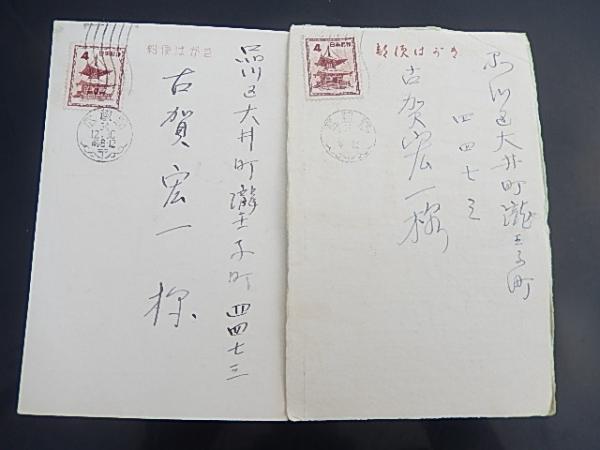 郵便はがき
4
日本郵便
品川区大井町瀧王子町四四七三
古賀宏一様
郵便はがき
4
日本郵便
品川区大井町瀧王子町
四四七三
古賀宏一様